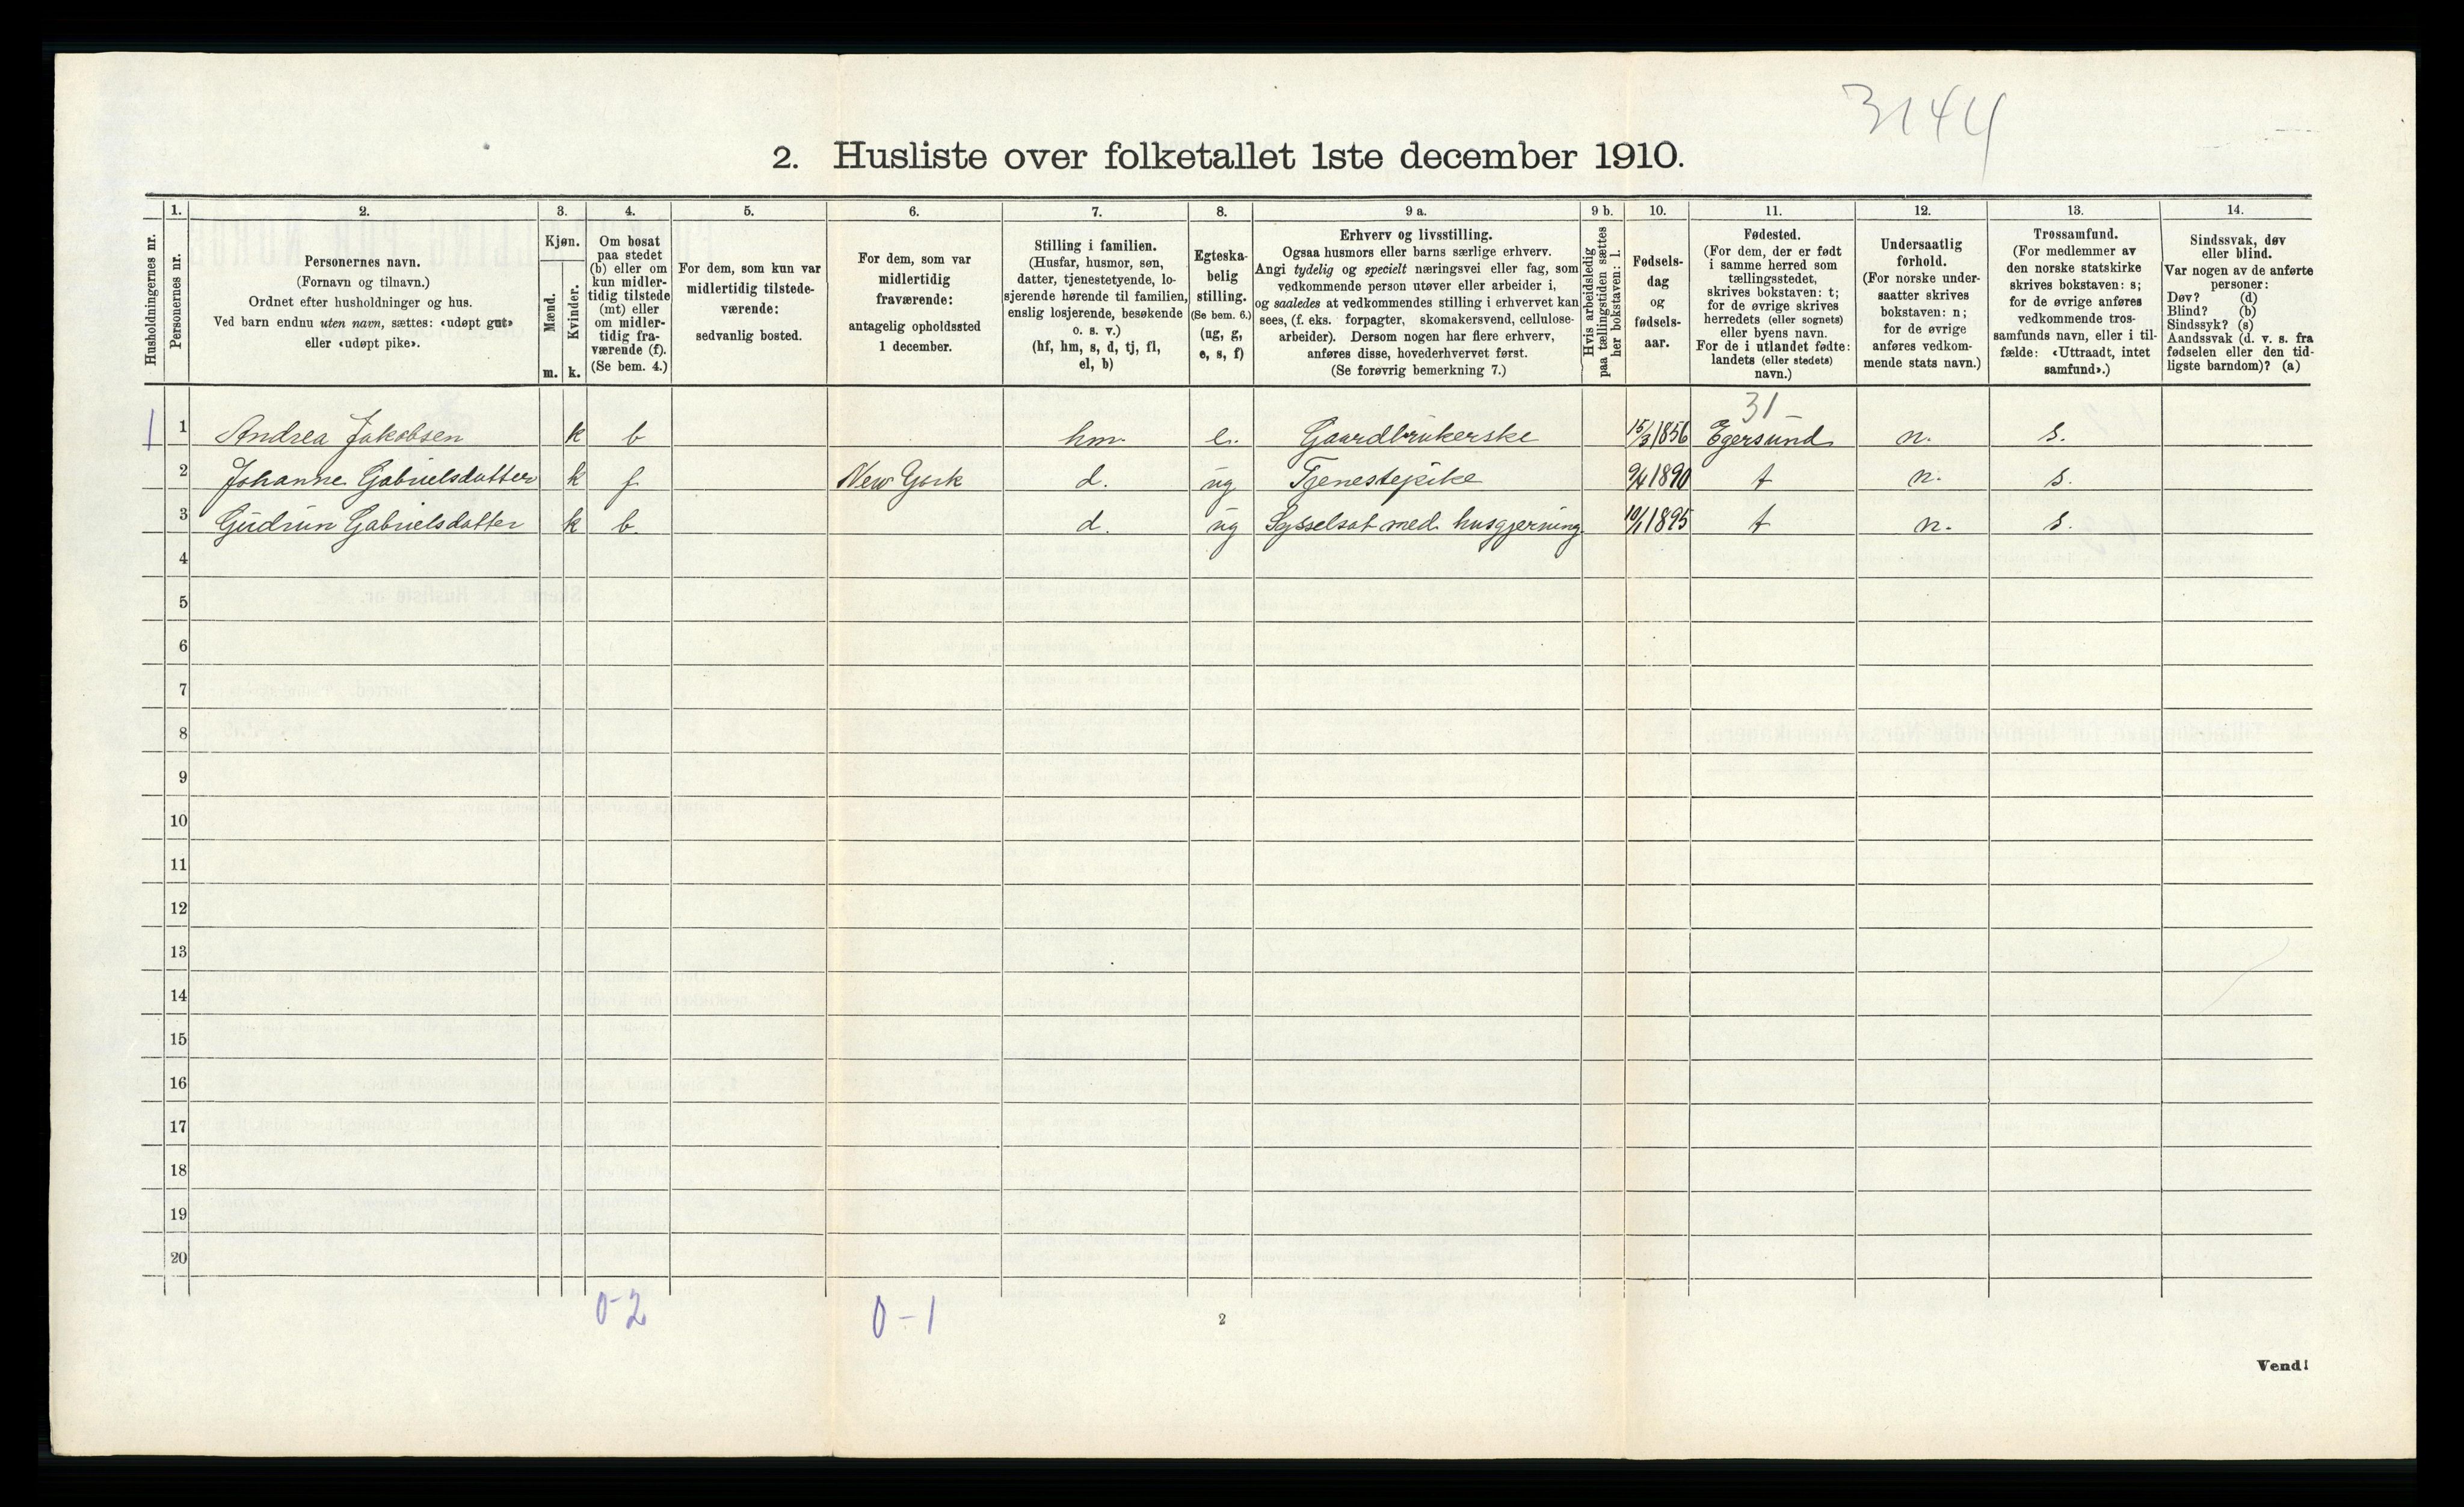 3144
2. Husliste over folketallet 1ste december 1910.
Husholdningernes nr.
1.
Personernes nr.
2.
Personernes navn.
(Fornavn og tilnavn.)
Ordnet efter husholdninger og hus.
Ved barn endnu uten navn, sættes: «udøpt gut»
eller «udøpt pike».
3.
Kjøn.
Mænd.
Kvinder.
m. k.
4.
Om bosat
paa stedet
(b) eller om
kun midler-
tidig tilstede
(mt) eller
om midler-
tidig fra-
værende (f).
(Se bem. 4.)
5.
For dem, som kun var
midlertidig tilstede-
værende:
sedvanlig bosted.
6.
For dem, som var
midlertidig
fraværende:
antagelig opholdssted
1 december.
7.
Stilling i familien.
(Husfar, husmor, søn,
datter, tjenestetyende, lo-
sjerende hørende til familien,
enslig losjerende, besøkende
o. s. v.)
(hf, hm, s, d, tj, fl,
el, b)
8.
Egteska-
belig
stilling.
(Se bem. 6.)
(ug, g,
e, s, f)
9 a.
Erhverv og livsstilling.
Ogsaa husmors eller barns særlige erhverv.
Angi tydelig og specielt næringsvei eller fag, som
vedkommende person utøver eller arbeider i,
og saaledes at vedkommendes stilling i erhvervet kan
sees, (f. eks. forpagter, skomakersvend, cellulose-
arbeider). Dersom nogen har flere erhverv,
anføres disse, hovederhvervet først.
(Se forøvrig bemerkning 7.)
9 b.
Hvis arbeidsledig
paa tællingstiden sættes
her bokstaven: l.
10.
Fødsels-
dag
og
fødsels-
aar.
11.
Fødested.
(For dem, der er født
i samme herred som
tællingsstedet,
skrives bokstaven: t;
for de øvrige skrives
herredets (eller sognets)
eller byens navn.
For de i utlandet fødte:
landets (eller stedets)
navn.)
12.
Undersaatlig
forhold.
(For norske under-
saatter skrives
bokstaven: n;
for de øvrige
anføres vedkom-
mende stats navn.)
13.
Trossamfund.
(For medlemmer av
den norske statskirke
skrives bokstaven: s;
for de øvrige anføres
vedkommende tros-
samfunds navn, eller i til-
fælde: «Uttraadt, intet
samfund».)
14.
Sindssvak, døv
eller blind.
Var nogen av de anførte
personer:
Døv? (d)
Blind? (b)
Sindssyk? (s)
Aandssvak (d. v. s. fra
fødselen eller den tid-
ligste barndom)? (a)
31
1 1 Andrea Jakobsen k b hm. e. Gaardbrukerske 15/3 1856 Egersund n. s.
2 Johanne Gabrielsdatter k f New York d. ug Tjenestepike 9/4 1890 t n. s.
3 Gudrun Gabrielsdatter k b d. ug Sysselsat med husgjerning. 10/1 1895 t n. s.
4
5
6
7
8
9
10
11
12
13
14
15
16
17
18
19
20
0-2 0-1
2
Vend!